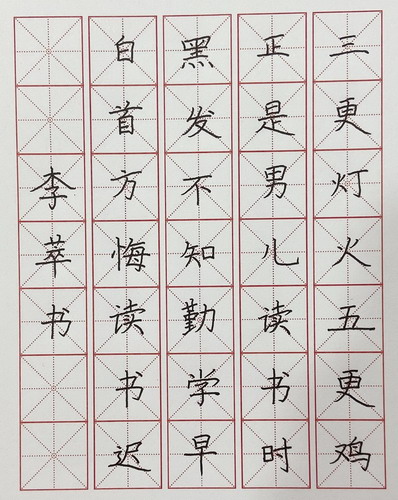 三更灯火五更鸡
正是男儿读书时
黑发不知勤学早
白首方悔读书迟
李萃书